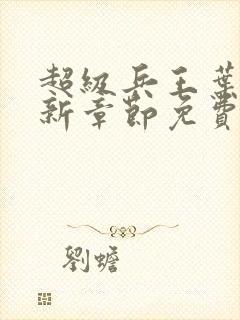 超級兵王葉
新章節免費
劉蟾